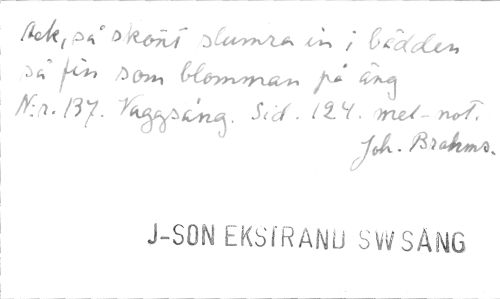 Ack, så skönt slumra in i bädden
så fin som blomman på äng
N:r. 137. Vaggsång. Sid. 124. mel-not.
Joh. Brahms.
J-SON EKSTRAND SW SÅNG